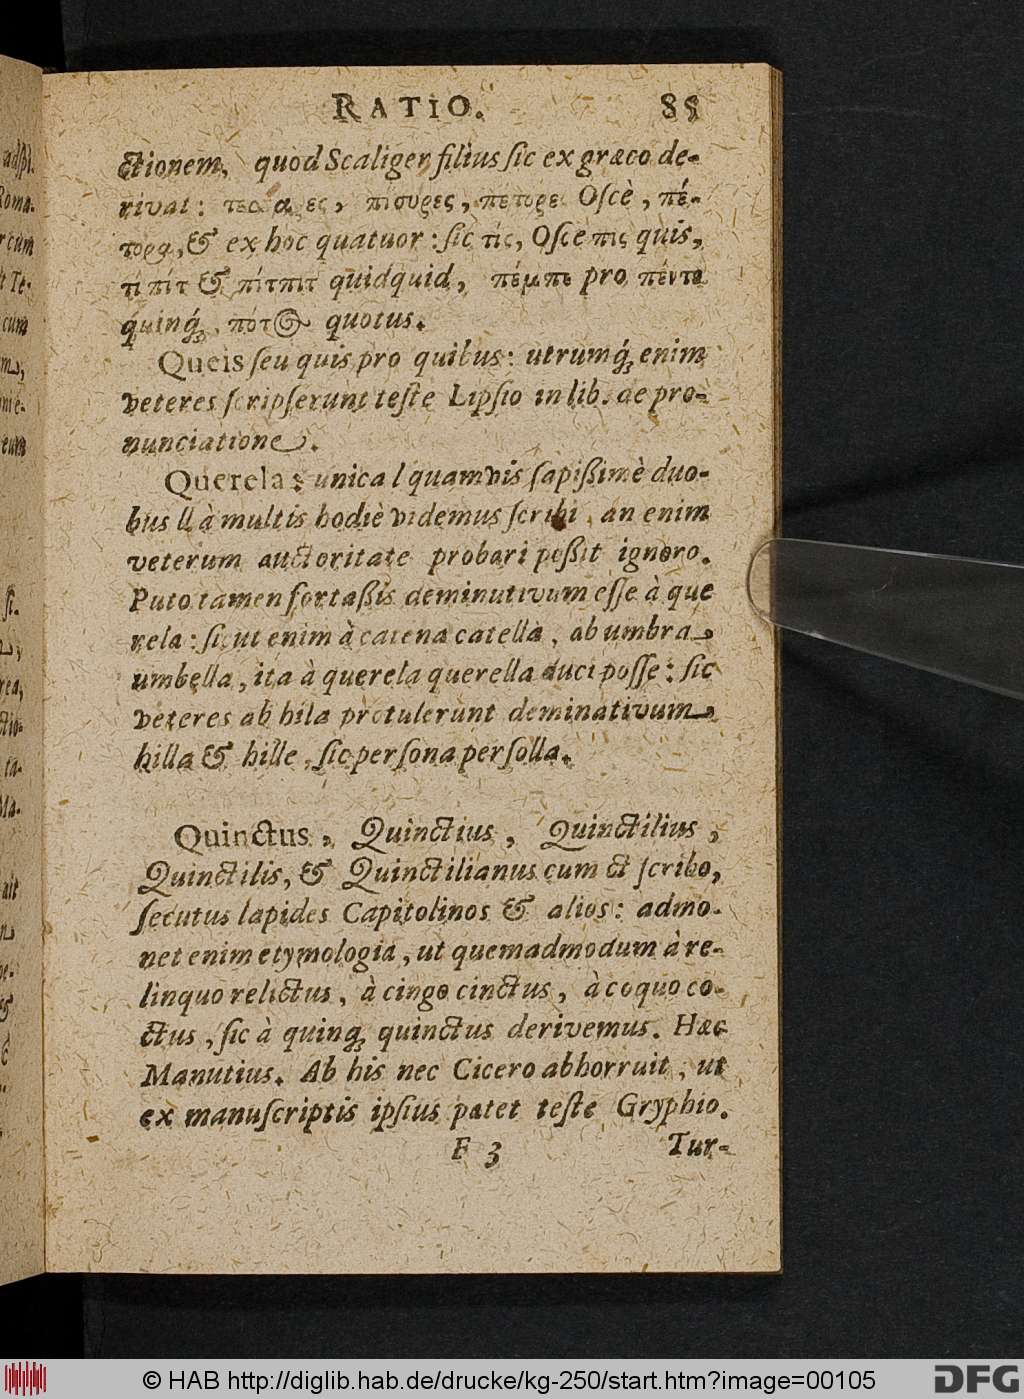 RATIO. 85
ctionem, quod Scaliger filius sic ex græco de-
rivat: πίσυρες, πέτορε Oscè, πέ-
τορα, & ex hoc quatuor: sic τίς, Osce πις quis,
τί πίτ & πίτπιτ quidquid, πέμπε pro πέντε
quinq́ꝫ, πότ quotus.
Queis seu quis pro quibus: utrumq́ꝫ enim
veteres scripserunt teste Lipsio in lib. de pro-
nunciatione.
Querela: unica l quamvis sapißimè duo-
bus ll à multis hodiè videmus scribi, an enim
veterum auctoritate probari poßit ignoro.
Puto tamen fortaßis deminutivum esse à que
rela: sicut enim à catena catella, ab umbra
umbella, ita à querela querella duci posse: sic
veteres ab hila protulerunt deminativum
hilla & hille, sic persona persolla.
Quinctus, Quinctius, Quinctilius,
Quinctilis, & Quinctilianus cum ct scribo,
secutus lapides Capitolinos & alios: admo-
net enim etymologia, ut quemadmodum à re-
linquo relictus, à cingo cinctus, à coquo co-
ctus, sic à quinqꝫ quinctus derivemus. Hæc
Manutius. Ab his nec Cicero abhorruit, ut
ex manuscriptis ipsius patet teste Gryphio.
F 3 Tur-
© HAB http://diglib.hab.de/drucke/kg-250/start.htm?image=00105
DFG